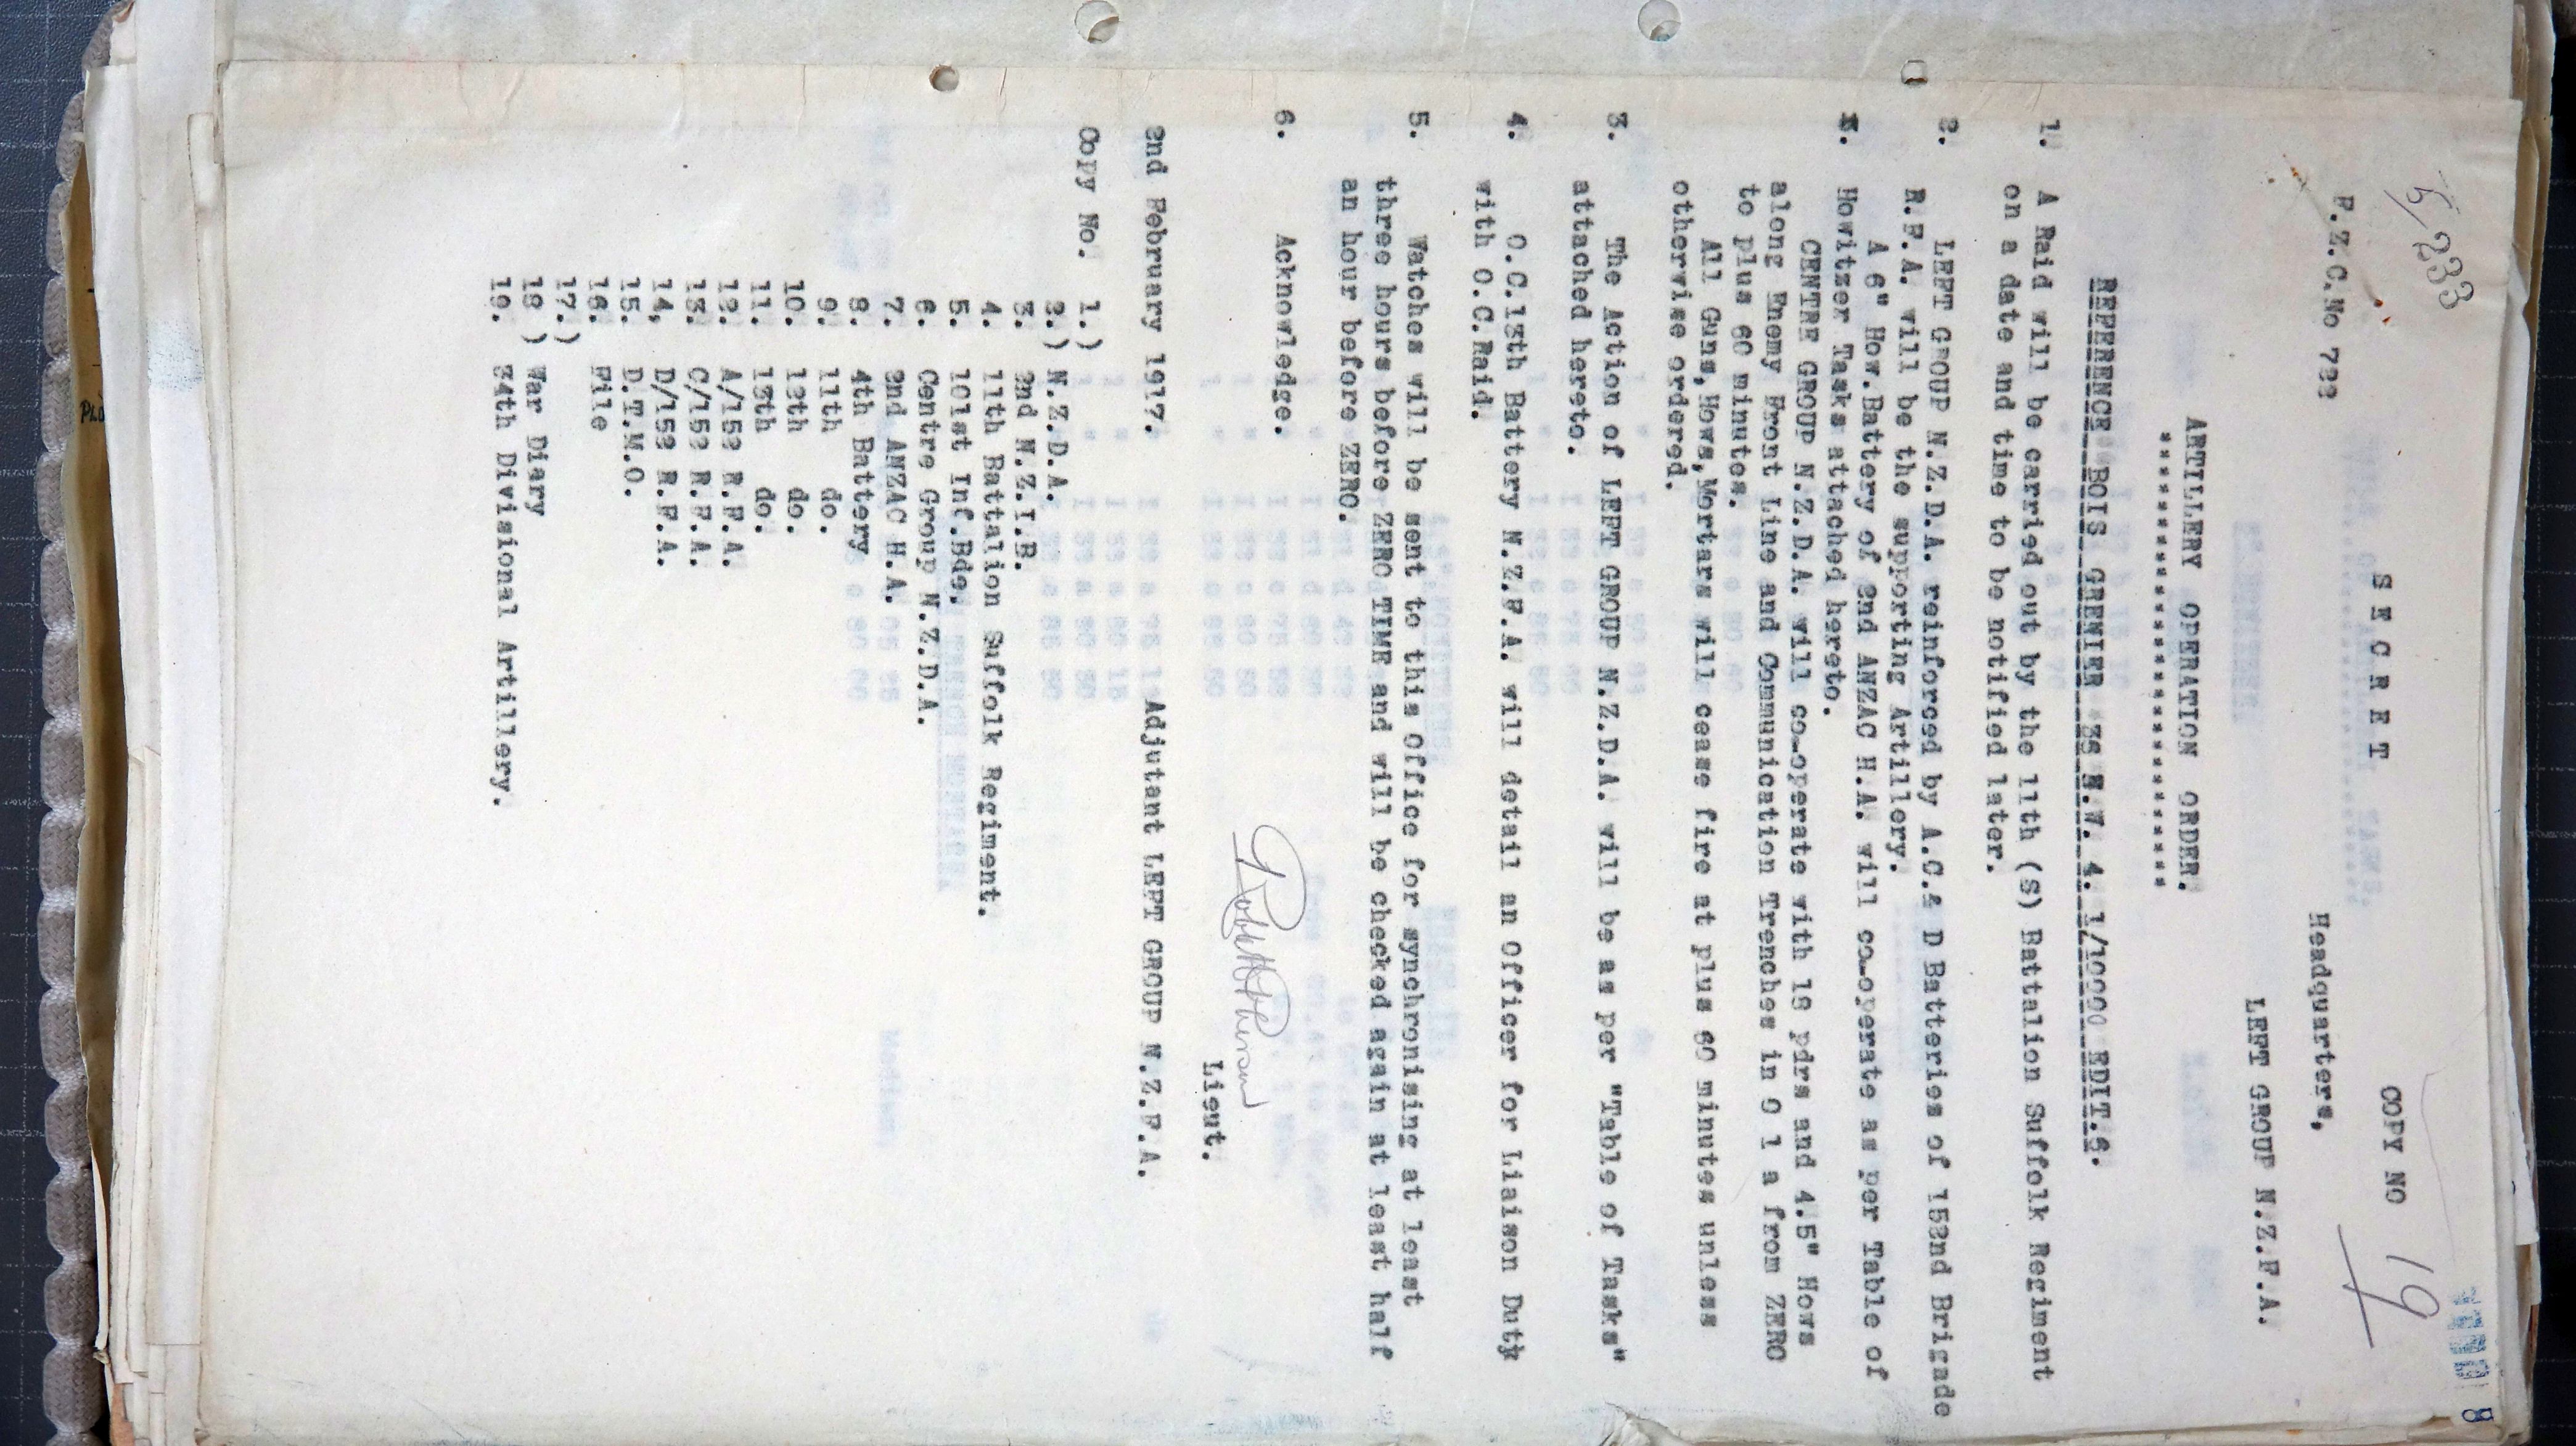 5/233
S E C R E T
COPY NO 19
F.Z.C.No 723
Headquarters,
LEFT GROUP N.Z.F.A.
ARTILLERY OPERATION ORDER.
REFERENCE BOIS GRENIER 36 N.W. 4. 1/10000 EDIT.6.
1. A Raid will be carried out by the 11th (S) Battalion Suffolk Regiment
on a date and time to be notified later.
2. LEFT GROUP N.Z.D.A. reinforced by A.C.& D Batteries of 152nd Brigade
R.F.A. will be the supporting Artillery.
A 6" How.Battery of 2nd ANZAC H.A. will co-operate as per Table of
Howitzer Tasks attached hereto.
CENTRE GROUP N.Z.D.A. will co-operate with 18 pdrs and 4.5" Hows
along Enemy Front Line and Communication Trenches in O 1 a from ZERO
to plus 60 minutes.
All Guns,Hows,Mortars will cease fire at plus 60 minutes unless
otherwise ordered.
3. The Action of LEFT GROUP N.Z.D.A. will be as per "Table of Tasks"
attached hereto.
4. O.C.13th Battery N.Z.F.A. will detail an Officer for Liaison Duty
with O.C.Raid.
5. Watches will be sent to this Office for synchronising at least
three hours before ZERO TIME and will be checked again at least half
an hour before ZERO.
6. Acknowledge.
Lieut.
2nd February 1917. Adjutant LEFT GROUP N.Z.F.A.
Copy No. 1.)
2.) N.Z.D.A.
3. 2nd N.Z.I.B.
4. 11th Battalion Suffolk Regiment.
5. 101st Inf.Bde.
6. Centre Group N.Z.D.A.
7. 2nd ANZAC H.A.
8. 4th Battery
9. 11th do.
10. 12th do.
11. 13th do.
12. A/152 R.F.A.
13. C/152 R.F.A.
14, D/152 R.F.A.
15. D.T.M.O.
16. File
17.)
18 ) War Diary
19. 34th Divisional Artillery.